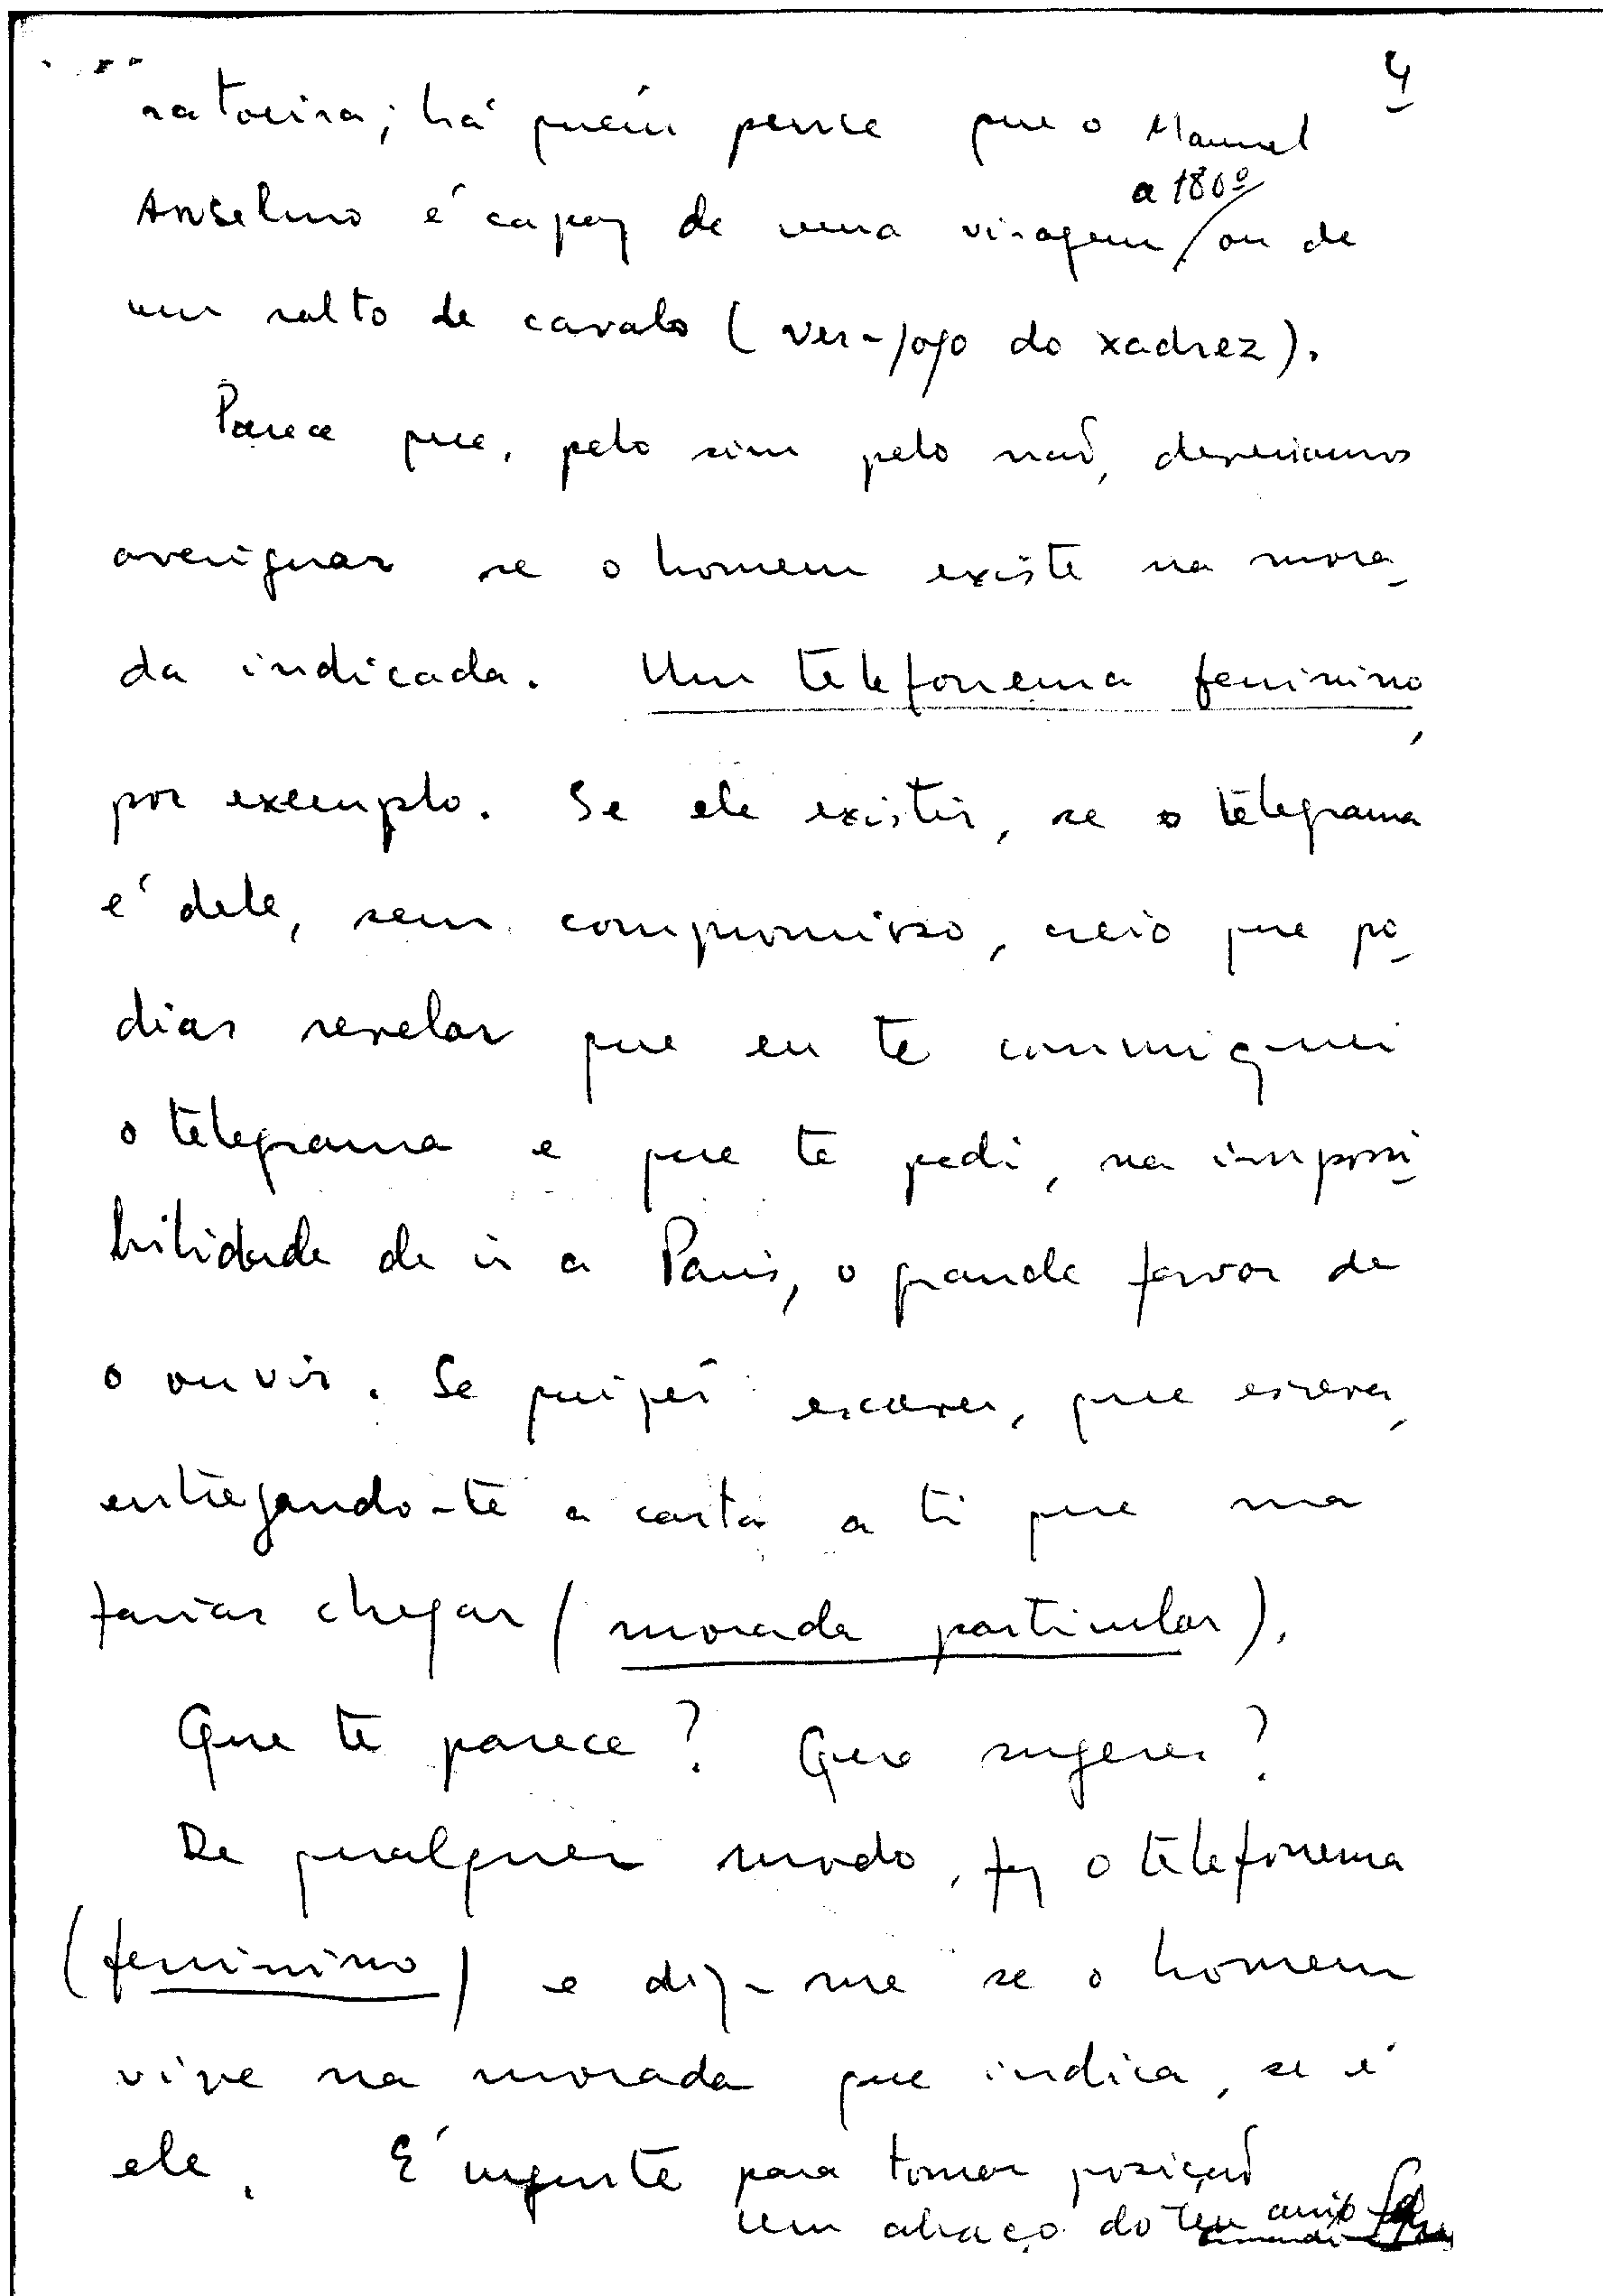 4
ratoeira; há quem pense que o Manuel
a 180º
Anselmo é capaz de uma viragem / ou de
um salto de cavalo (ver-jogo do xadrez).
Parece que, pelo sim pelo não, deveriamos
averiguar se o homem existe na mora-
da indicada. Um telefonema feminino,
por exemplo. Se ele existir, se o telegrama
é dele, sem compromisso, creio que po-
dias revelar que eu te comuniquei
o telegrama e que te pedi, na impossi-
bilidade de ir a Paris, o grande favor de
o ouvir. Se quizer escrever, que escreva,
entregando-te a carta a ti que ma
farias chegar (morada particular).
Que te parece? Que sugeres?
De qualquer modo, faz o telefonema
(feminino) e diz-me se o homem
vive na morada que indica, se é
ele. É urgente para tomar posição
Um abraço do teu amigo